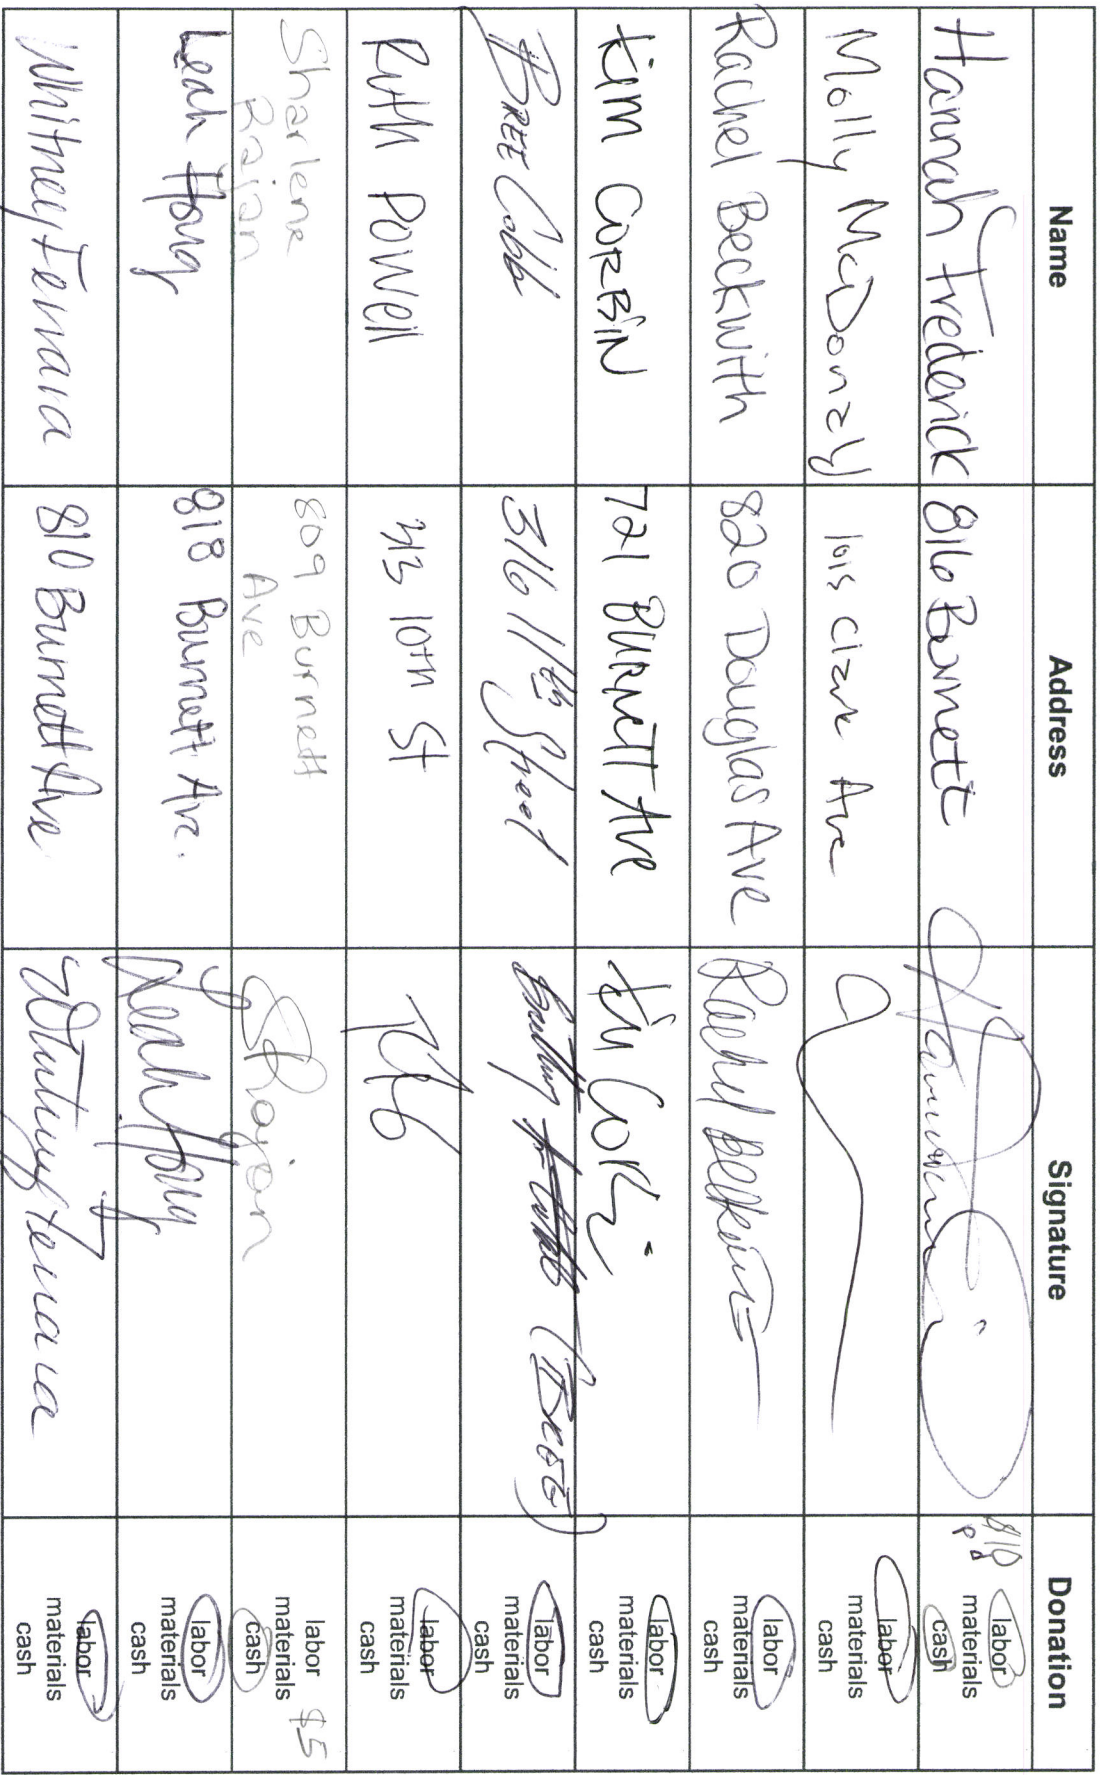 Name Address Signature Donation
Hannah Frederick 816 Burnett $10 pd labor
materials
cash
Molly McDonzld 1015 Clzrk Ave labor
materials
cash
Rachel Beckwith 820 Douglas Ave Rachel Beckwith labor
materials
cash
Kim CORBiN 721 BURNETT AVE Kim Corbi labor
materials
cash
BREE Cobb 316 11th Street (BREE) labor
materials
cash
Ruth Powell 413 10th St labor
materials
cash
Sharlene
Rajan 809 Burnett
Ave SRajan labor $5
materials
cash
Leah Hong 818 Burnett Ave. Leah Hong labor
materials
cash
Whitney Ferrara 810 Burnett Ave Whitney Ferrara labor
materials
cash